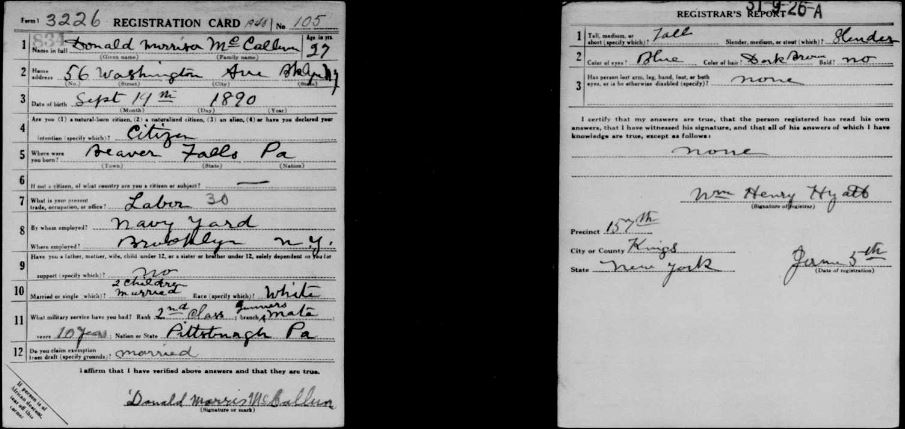 Form 1 3226 REGISTRATION CARD No 105
1 Name in full Donald Morrison McCallum Age in yrs. 27
(Given name) (Family name)
2 Home address 56 Washington Ave Bklyn NY
(No.) (Street) (City) (State)
3 Date of birth Sept 19th 1890
(Month) (Day) (Year)
4 Are you (1) a natural-born citizen, (2) a naturalized citizen, (3) an alien, (4) or have you declared your
intention (specify which)? Citizen
5 Where were you born? Beaver Falls Pa
(Town) (State) (Nation)
6 If not a citizen, of what country are you a citizen or subject? —
7 What is your present trade, occupation, or office? Labor 30
8 By whom employed? Navy Yard
Where employed? Brooklyn N.Y.
9 Have you a father, mother, wife, child under 12, or a sister or brother under 12, solely dependent on you for
support (specify which)? No
2 Children
10 Married or single (which)? Married Race (specify which)? White
11 What military service have you had? Rank 2nd Class branch Gunners Mate
years 10 Years Nation or State Pittsburgh Pa
12 Do you claim exemption from draft (specify grounds)? married
I affirm that I have verified above answers and that they are true.
Donald Morris McCallum
(Signature or mark)
If person is of African descent, tear off this corner
31-9-26-A
REGISTRAR'S REPORT
1 Tall, medium, or short (specify which)? Tall Slender, medium, or stout (which)? Slender
2 Color of eyes? Blue Color of hair? Dark Brown Bald? no
3 Has person lost arm, leg, hand, foot, or both eyes, or is he otherwise disabled (specify)? none
I certify that my answers are true, that the person registered has read his own
answers, that I have witnessed his signature, and that all of his answers of which I have
knowledge are true, except as follows:
none
Wm Henry Hyatt
(Signature of registrar)
Precinct 157th
City or County Kings
State New York
June 5th
(Date of registration)